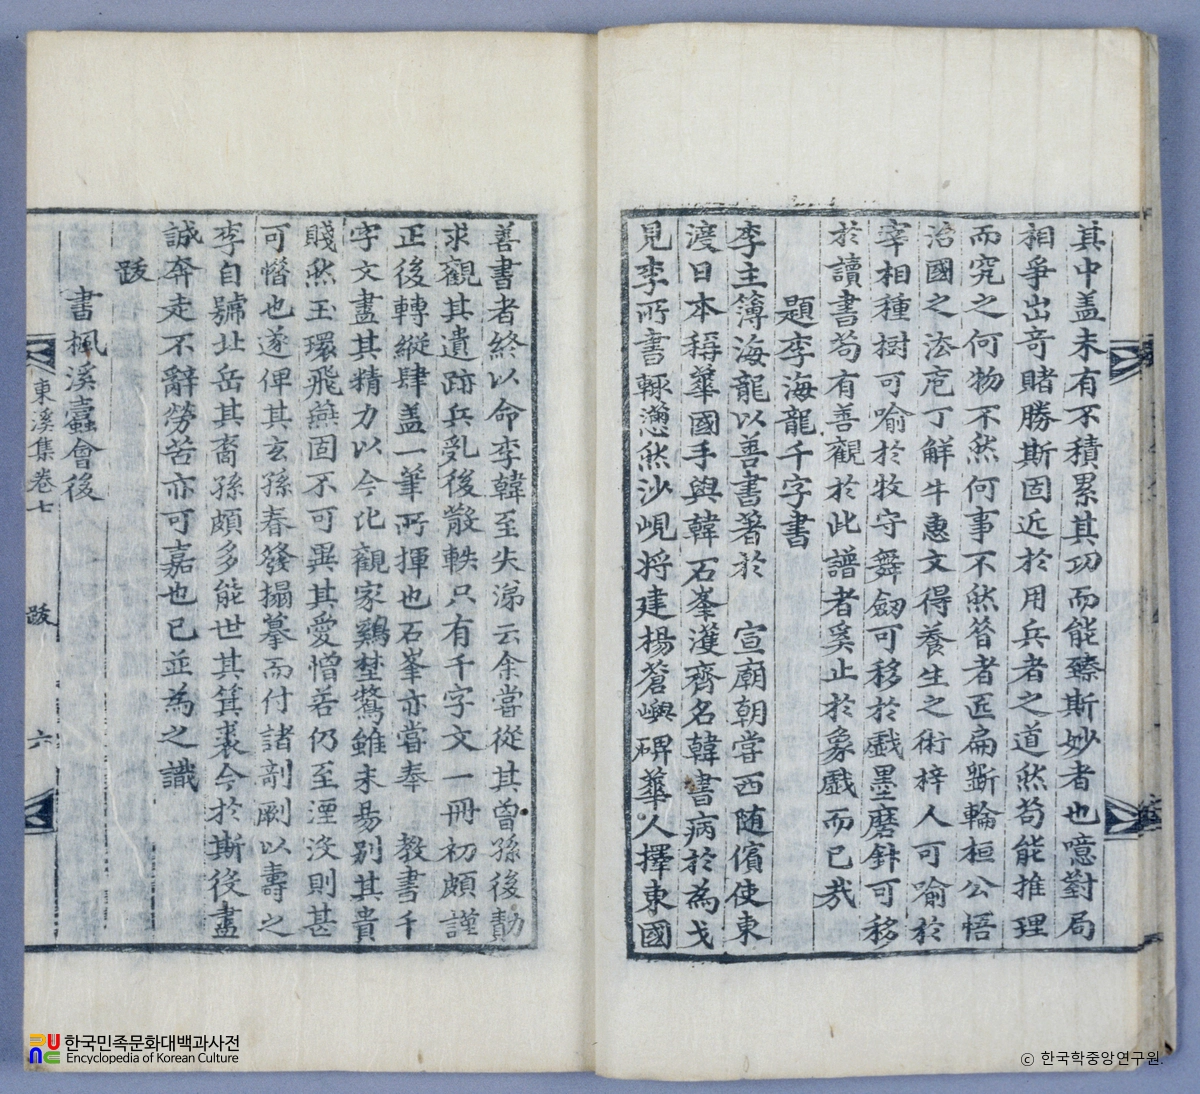 其中盖未有不積累其功而能臻斯妙者也噫對局
相爭出奇賭勝斯固近於用兵者之道然苟能推理
而究之何物不然何事不然昔者匠扁斲輪桓公悟
治國之法庖丁解牛惠文得養生之術梓人可喻於
宰相種樹可喻於牧守舞劒可移於戱墨磨針可移
於讀書苟有善觀於此譜者奚止於象戱而已哉
題李海龍千字書
李主簿海龍以善書著於 宣廟朝嘗西随儐使東
渡日本稱華國手與韓石峯濩齊名韓書病於為戈
見李所書輒懣然沙峴将建楊蒼嶼碑華人擇東國
善書者終以命李韓至失涕云余嘗從其曾孫後勣
求觀其遺跡兵乱後散軼只有千字文一冊初頗謹
正後轉縱肆盖一筆所揮也石峯亦嘗奉 教書千
字文盡其精力以今比觀家鷄埜鶩雖未易别其貴
賤然玉環飛燕固不可異其愛憎若仍至湮没則甚
可惜也遂俾其玄孫春發搨摹而付諸剞劂以壽之
李自號北岳其裔孫頗多能世其箕裘今於斯役盡
誠奔走不辭勞苦亦可嘉也已並為之識
跋
書楓溪蠹會後
東溪集卷七 跋 六
한국민족문화대백과사전
Encyclopedia of Korean Culture
ⓒ 한국학중앙연구원.